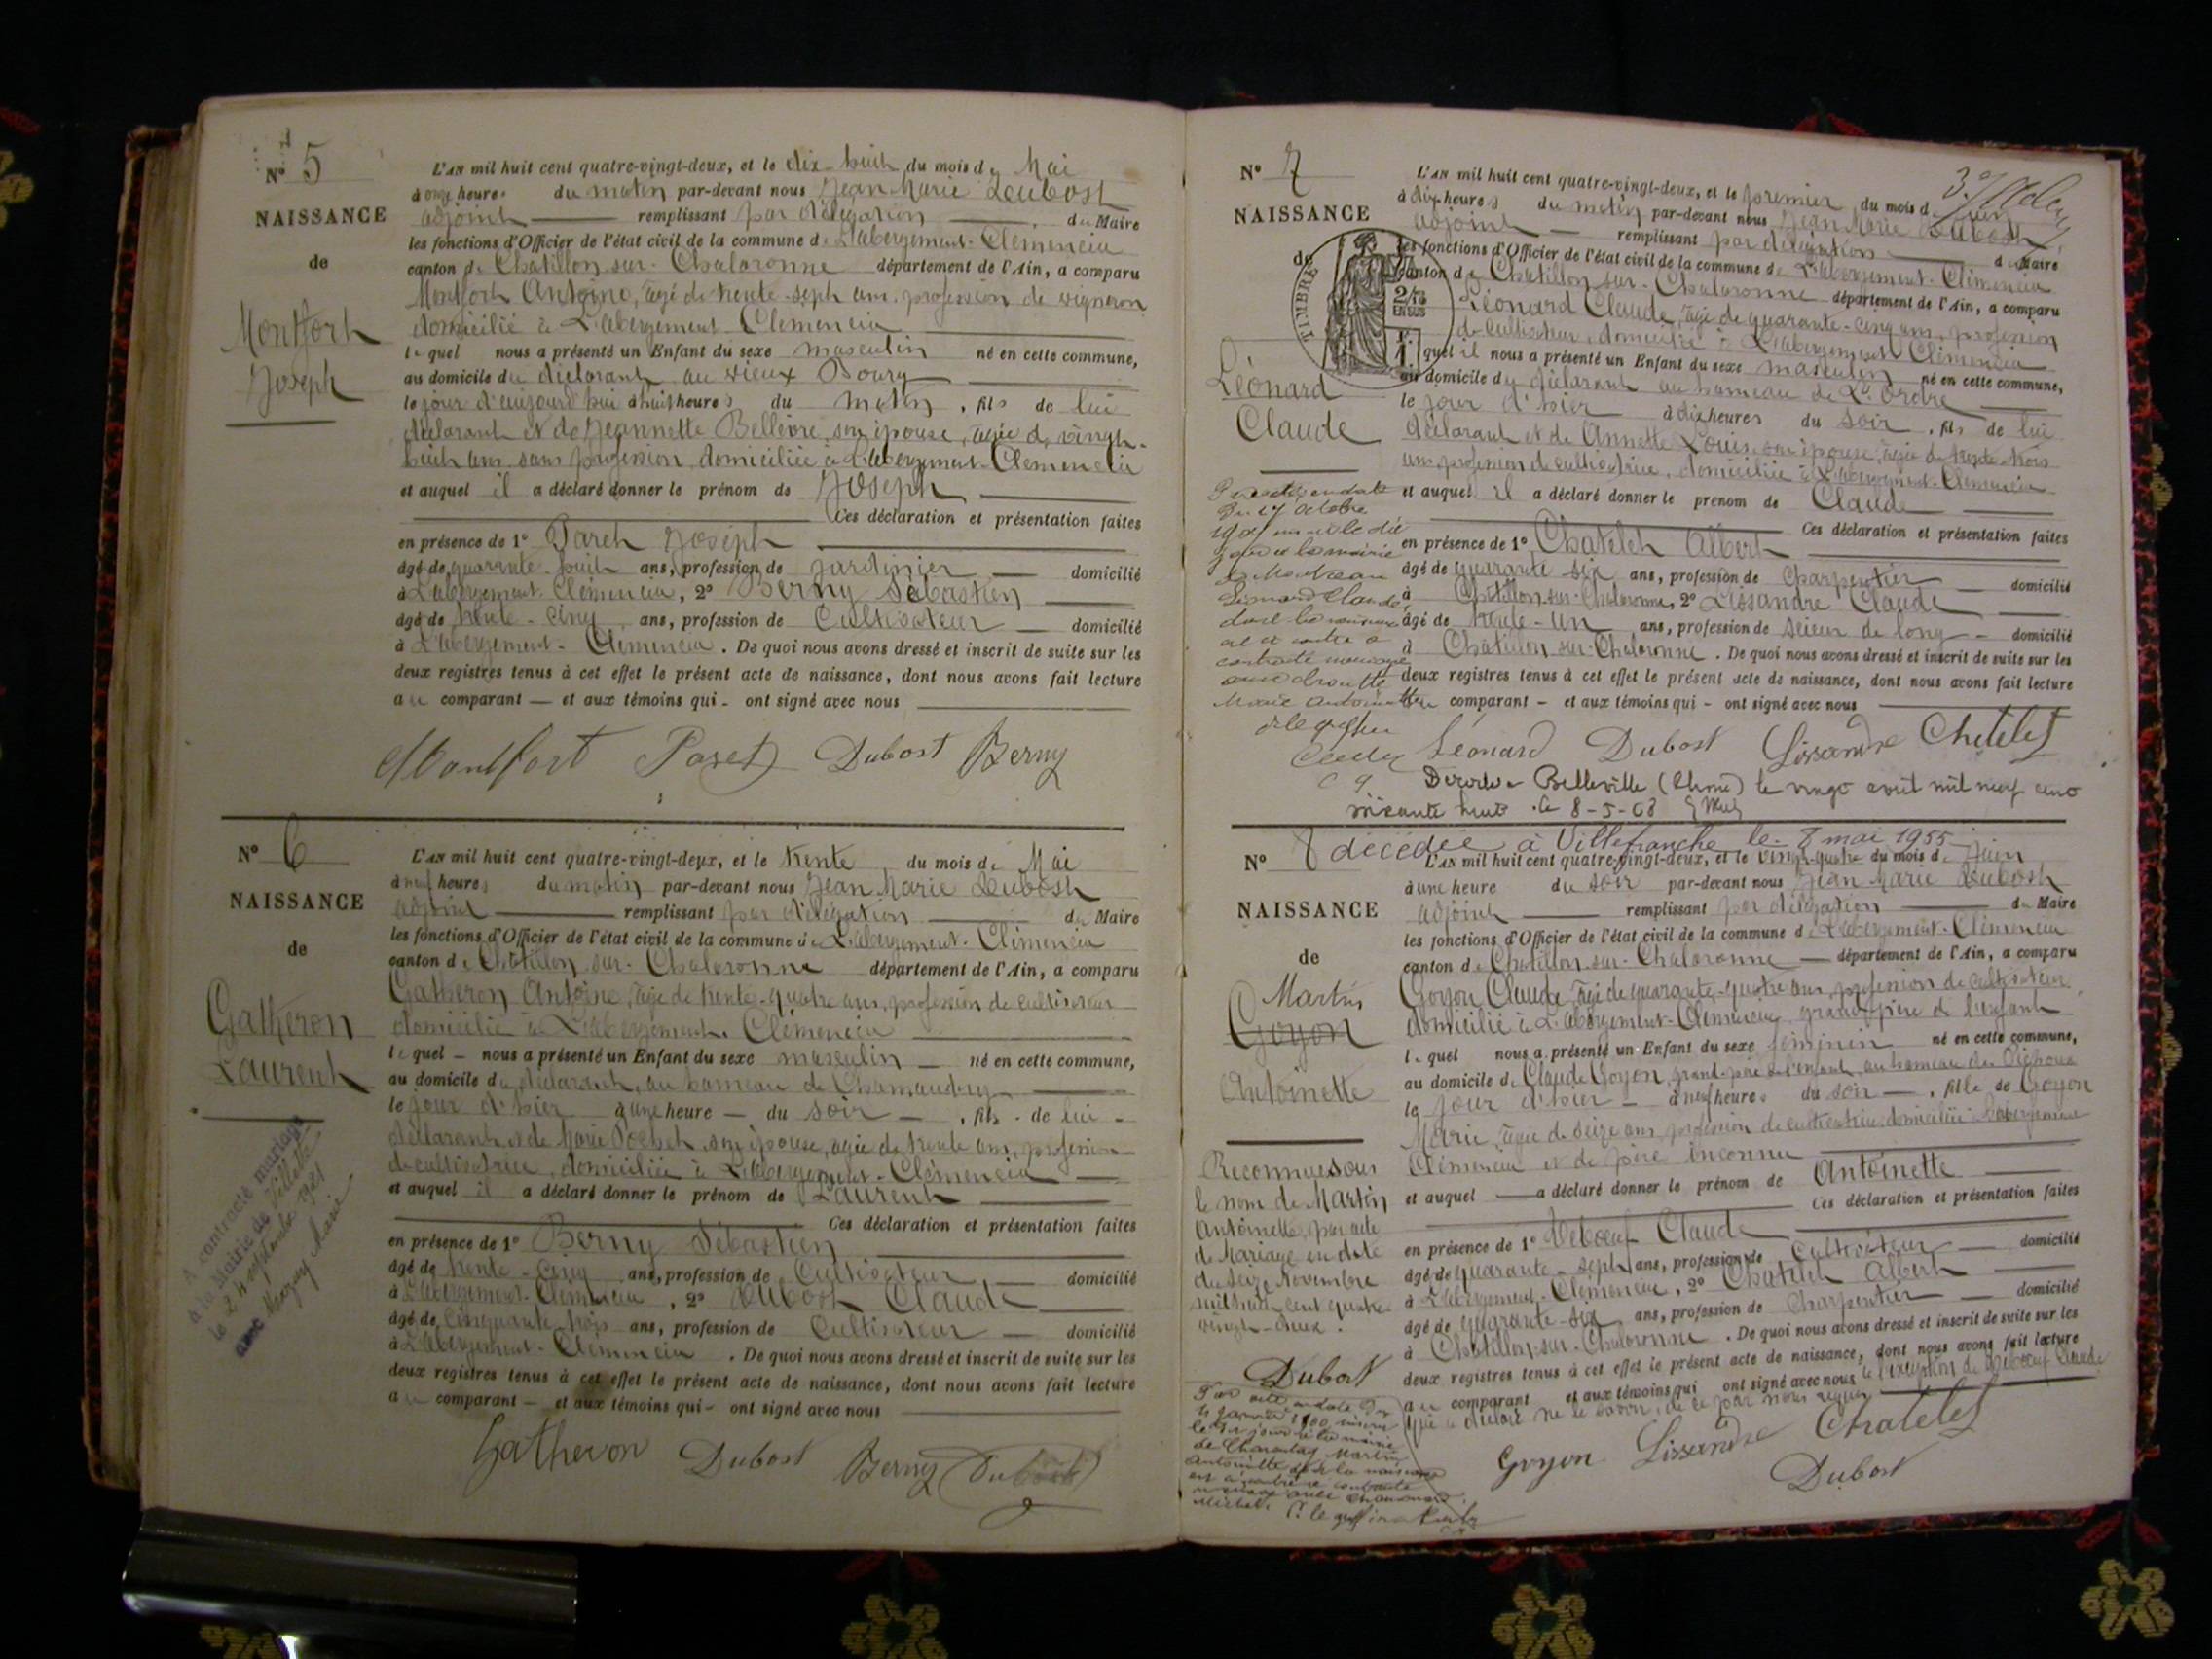 N° 5
NAISSANCE
de
Montfort
Joseph
L'AN mil huit cent quatre-vingt-deux, et le dix-huit du mois de Mai
à onze heures du matin par-devant nous Jean Marie Dubost
adjoint remplissant par délégation du Maire
les fonctions d'Officier de l'état civil de la commune de L'Abergement-Clémencia
canton de Chatillon-sur-Chalaronne département de l'Ain, a comparu
Montfort Antoine, âgé de trente-sept ans, profession de vigneron
domicilié à L'Abergement Clémencia
lequel nous a présenté un Enfant du sexe masculin né en cette commune,
au domicile du déclarant au vieux Bourg
le jour d'aujourd'hui à huit heures du matin, fils de lui
déclarant et de Jeannette Bellevre son épouse, âgée de vingt-
huit ans, sans profession, domiciliée à L'Abergement-Clémencia
et auquel il a déclaré donner le prénom de Joseph
Ces déclaration et présentation faites
en présence de 1° Paret Joseph
âgé de quarante-huit ans, profession de Jardinier domicilié
à L'Abergement-Clémencia, 2° Berny Sébastien
âgé de trente-cinq ans, profession de Cultivateur domicilié
à L'Abergement-Clémencia. De quoi nous avons dressé et inscrit de suite sur les
deux registres tenus à cet effet le présent acte de naissance, dont nous avons fait lecture
au comparant et aux témoins qui ont signé avec nous
Montfort Paret Dubost Berny
N° 6
NAISSANCE
de
Gatheron
Laurent
A contracté mariage
à la Mairie de Villette
le 24 septembre 1921
avec Marie
L'AN mil huit cent quatre-vingt-deux, et le trente du mois de Mai
à neuf heures du matin par-devant nous Jean Marie Dubost
adjoint remplissant par délégation du Maire
les fonctions d'Officier de l'état civil de la commune de L'Abergement-Clémencia
canton de Châtillon-sur-Chalaronne département de l'Ain, a comparu
Gatheron Antoine, âgé de trente-quatre ans, profession de cultivateur
domicilié à L'Abergement-Clémencia
lequel nous a présenté un Enfant du sexe masculin né en cette commune,
au domicile du déclarant, au hameau de
le jour d'hier à une heure du soir, fils de lui
déclarant et de Marie Pochet, son épouse, âgée de trente ans, profession
de cultivatrice, domiciliée à L'Abergement-Clémencia
et auquel il a déclaré donner le prénom de Laurent
Ces déclaration et présentation faites
en présence de 1° Berny Sébastien
âgé de trente-cinq ans, profession de Cultivateur domicilié
à L'Abergement-Clémencia, 2° Dubost Claude
âgé de cinquante-trois ans, profession de Cultivateur domicilié
à L'Abergement-Clémencia. De quoi nous avons dressé et inscrit de suite sur les
deux registres tenus à cet effet le présent acte de naissance, dont nous avons fait lecture
au comparant et aux témoins qui ont signé avec nous
Gatheron Dubost Berny Dubost
N° 7
NAISSANCE
de
TIMBRE
2/10
EN SUS
Léonard
Claude
Par acte en date
du 17 Octobre
à la mairie
Léonard Claude
dont la naissance
est ci contre a
contracté mariage
avec
Marie Antoinette
L'AN mil huit cent quatre-vingt-deux, et le premier du mois de Juin
à dix heures du matin par-devant nous Jean Marie Dubost
adjoint remplissant par délégation du Maire
les fonctions d'Officier de l'état civil de la commune de L'Abergement-Clémencia
canton de Chatillon-sur-Chalaronne département de l'Ain, a comparu
Léonard Claude, âgé de quarante-cinq ans, profession
de cultivateur, domicilié à L'Abergement Clémencia
lequel il nous a présenté un Enfant du sexe masculin né en cette commune,
au domicile du déclarant au hameau de L'Ordre
le jour d'hier à dix heures du soir, fils de lui
déclarant et de Annette Louis, son épouse, âgée de trente-trois
ans, profession de cultivatrice, domiciliée à L'Abergement-Clémencia
et auquel il a déclaré donner le prénom de Claude
Ces déclaration et présentation faites
en présence de 1° Chatelet Albert
âgé de quarante-six ans, profession de Charpentier domicilié
à Châtillon-sur-Chalaronne, 2° Lissandre Claude
âgé de trente-un ans, profession de scieur de long domicilié
à Châtillon-sur-Chalaronne. De quoi nous avons dressé et inscrit de suite sur les
deux registres tenus à cet effet le présent acte de naissance, dont nous avons fait lecture
au comparant et aux témoins qui ont signé avec nous
Léonard Dubost Lissandre Chatelet
Décédé à Belleville (Rhône) le vingt avril mil neuf cent
soixante huit. le 8-5-68
N° 8 décédée à Villefranche le 8 mai 1955
NAISSANCE
de
Martin
Goyon
Antoinette
Reconnue sous
le nom de Martin
Antoinette, par acte
de Mariage en date
du seize Novembre
mil huit cent quatre-
vingt-deux.
Dubost
Par acte en date du
janvier 1900
de Charentay Martin
Antoinette dont la naissance
est ci contre a contracté
mariage avec
Michel.
L'AN mil huit cent quatre-vingt-deux, et le vingt-quatre du mois de Juin
à une heure du soir par-devant nous Jean Marie Dubost
adjoint remplissant par délégation du Maire
les fonctions d'Officier de l'état civil de la commune de L'Abergement-Clémencia
canton de Chatillon-sur-Chalaronne département de l'Ain, a comparu
Goyon Claude, âgé de quarante-quatre ans, profession de cultivateur
domicilié à L'Abergement-Clémencia, grand-père de l'enfant
lequel nous a présenté un Enfant du sexe féminin né en cette commune,
au domicile de Claude Goyon, grand-père de l'enfant, au hameau des
le jour d'hier à neuf heures du soir, fille de Goyon
Marie, âgée de seize ans, profession de cultivatrice, domiciliée à L'Abergement
Clémencia et de père inconnu
et auquel a déclaré donner le prénom de Antoinette
Ces déclaration et présentation faites
en présence de 1° Deboeuf Claude
âgé de quarante-sept ans, profession de Cultivateur domicilié
à L'Abergement-Clémencia, 2° Chatelet Albert
âgé de quarante-six ans, profession de Charpentier domicilié
à Châtillon-sur-Chalaronne. De quoi nous avons dressé et inscrit de suite sur les
deux registres tenus à cet effet le présent acte de naissance, dont nous avons fait lecture
au comparant et aux témoins qui ont signé avec nous à l'exception de Deboeuf Claude
qui a déclaré ne le savoir, de ce par nous requis
Goyon Lissandre Chatelet
Dubost